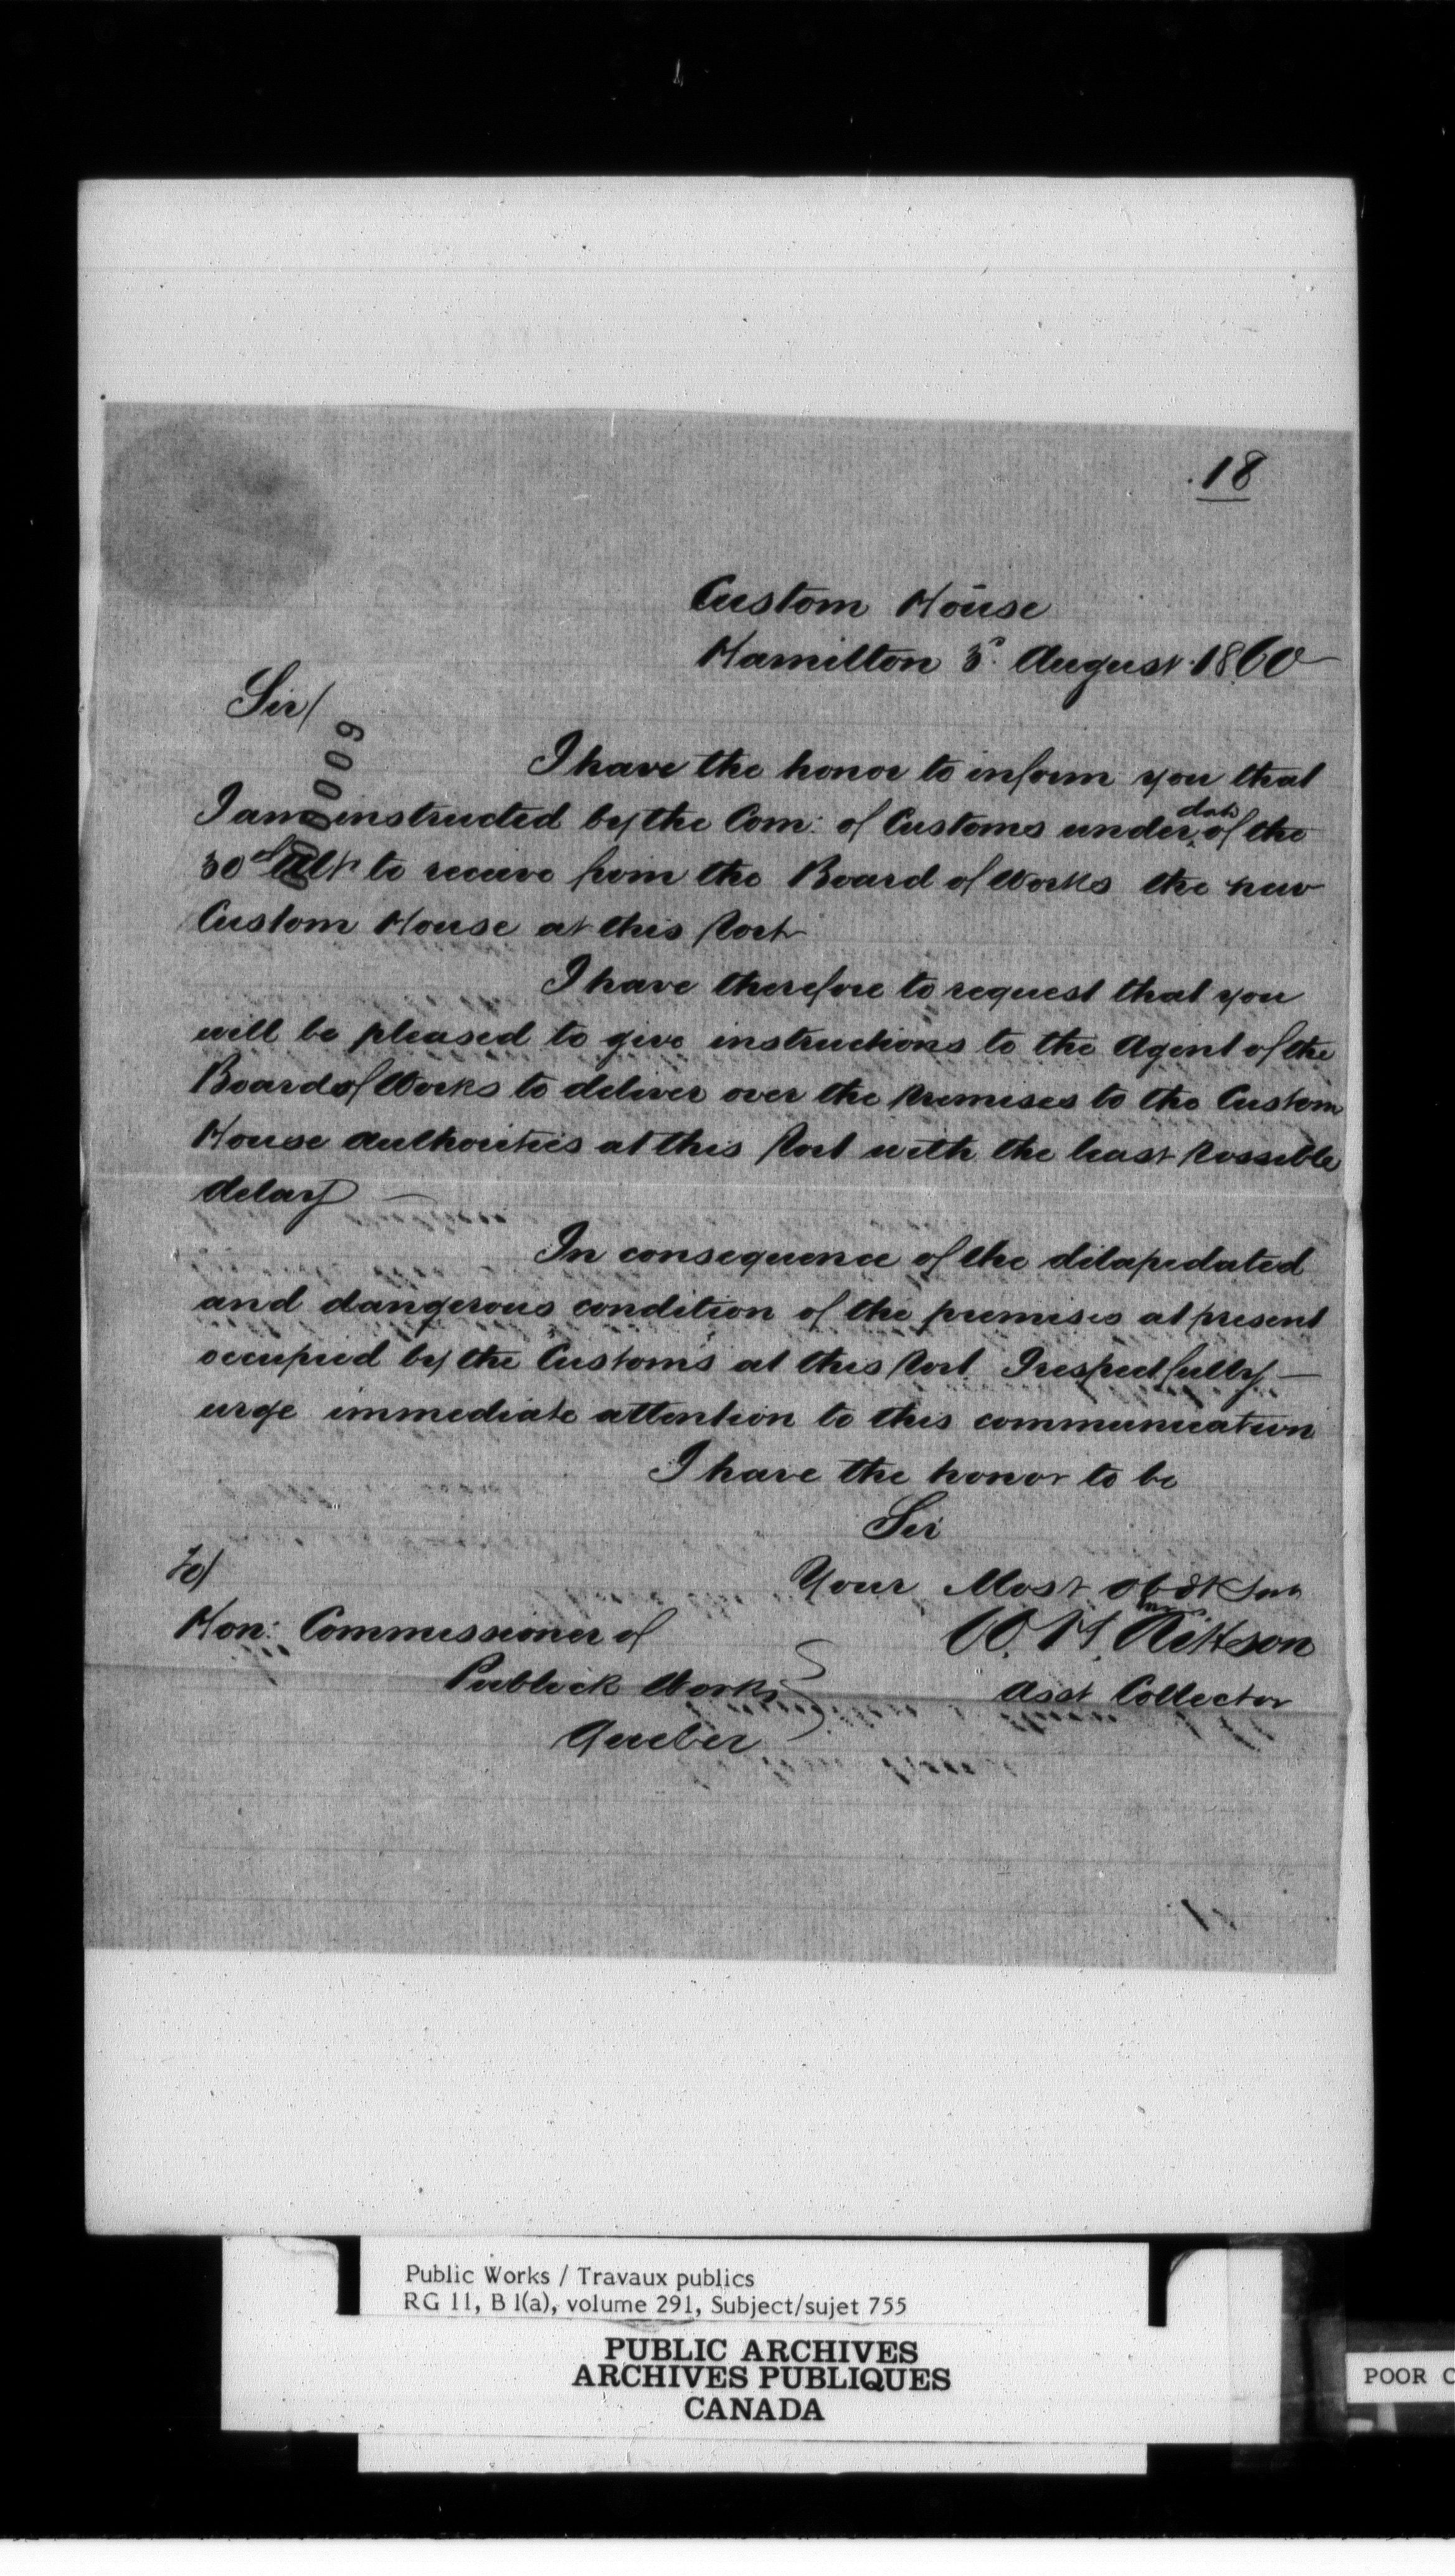 18
Custom House
Hamilton 3d August 1860
Sir/
000009
I have the honor to inform you that
I am instructed by the Com: of Customs under date of the
30th Ult to receive from the Board of Works the new
Custom House at this Port
I have therefore to request that you
will be pleased to give instructions to the Agent of the
Board of Works to deliver over the Premises to the Custom
House Authorities at this Port with the least Possible
delay —
In consequence of the dilapedated
and dangerous condition of the premises at present
occupied by the Customs at this Port I respectfully —
urge immediate attention to this communication
I have the honor to be
Sir
To/
Your Most obdt Servt
Hon: Commissioner of
W. H. Kittson
Publick Works
Asst Collector
Quebec
Public Works / Travaux publics
RG 11, B 1(a), volume 291, Subject/sujet 755
PUBLIC ARCHIVES
ARCHIVES PUBLIQUES
CANADA
POOR C